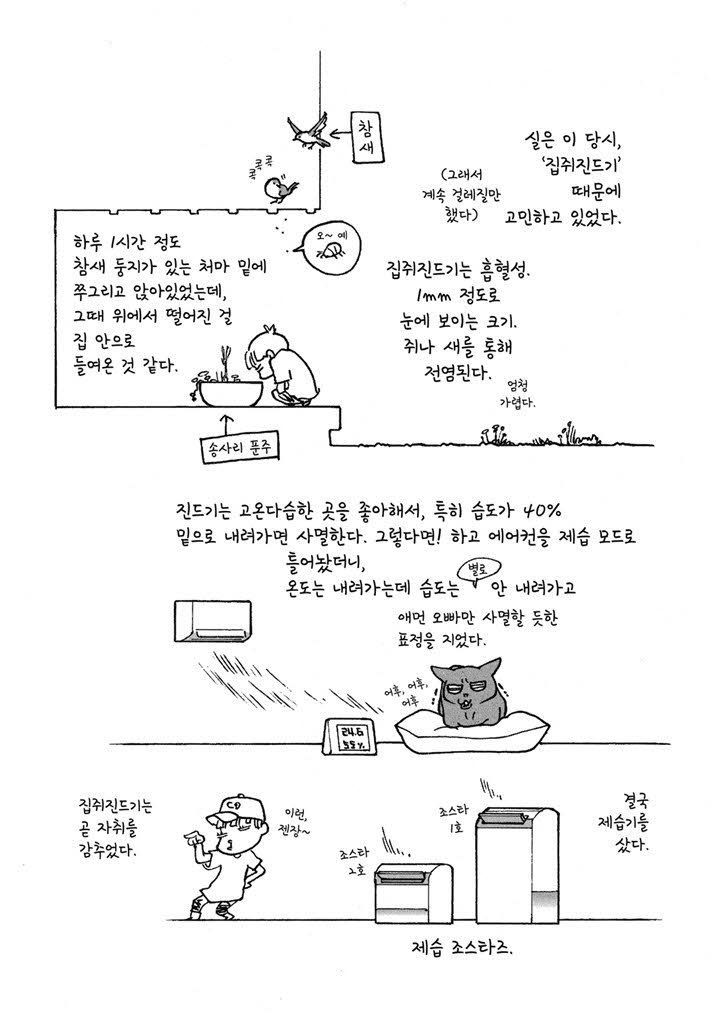 참
새
콕콕콕
실은 이 당시,
'집쥐진드기'
때문에
고민하고 있었다.
(그래서
계속 걸레질만
했다)
하루 1시간 정도
참새 둥지가 있는 처마 밑에
쭈그리고 앉아있었는데,
그때 위에서 떨어진 걸
집 안으로
들여온 것 같다.
오~ 예
집쥐진드기는 흡혈성.
1mm 정도로
눈에 보이는 크기.
쥐나 새를 통해
전염된다.
엄청
가렵다.
송사리 푼주
진드기는 고온다습한 곳을 좋아해서, 특히 습도가 40%
밑으로 내려가면 사멸한다. 그렇다면! 하고 에어컨을 제습 모드로
틀어놨더니,
온도는 내려가는데 습도는 별로 안 내려가고
애먼 오빠만 사멸할 듯한
표정을 지었다.
어후, 어후,
어후
24.6
55%
집쥐진드기는
곧 자취를
감추었다.
CD
이런,
젠장~
조스타
2호
조스타
1호
결국
제습기를
샀다.
제습 조스타즈.